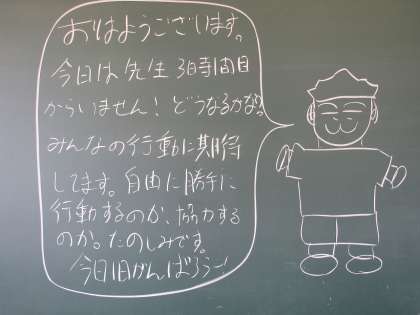 おはようございます。
今日は先生3時間目
からいません！どうなるかな？
みんなの行動に期待
してます。自由に勝手に
行動するのか、協力する
のか。たのしみです。
今日1日がんばろうー！